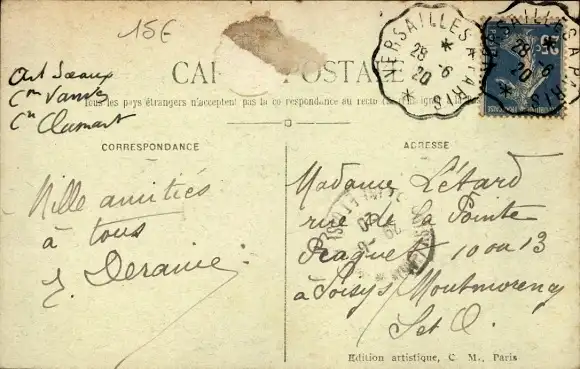 15€
Art Sceaux
Con Vanves
Cn Clamart
CARTE POSTALE
Tous les pays étrangers n'acceptent pas la correspondance au recto
VERSAILLES A PARIS
28 - 6
20
VERSAILLES A PARIS
28 - 6
20
CORRESPONDANCE
ADRESSE
Mille amitiés
à tous
Madame Létard
rue de la Pointe
Raquet 10 ou 13
à Soisy s/ Montmorency
S et O.
Edition artistique, C. M., Paris